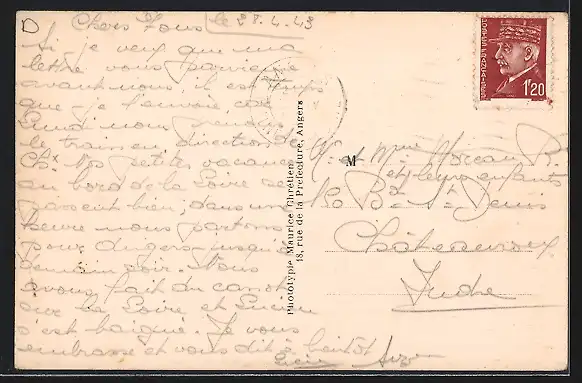 D
le 28.4.43
Chers Tous
Si je veux que ma
lettre vous parvienne
avant nous il est temps
que je l'envoie car
Lundi nous prenons
le train en direction de
Chx. Nos petites vacances
au bord de la Loire se
passent bien, dans une
heure nous partons
pour Angers jusqu'à
demain soir. Nous
avons fait du canot
sur la Loire et Lucien
s'est baigné. Je vous
embrasse et vous dit à bientôt
Lucien
Photolypie Maurice Chrétien
18, rue de la Préfecture, Angers
POSTES FRANÇAISES
1F20
M
Mr et Mme Moreau R.
et leurs enfants
Bd St Denis
Châteauroux
Indre